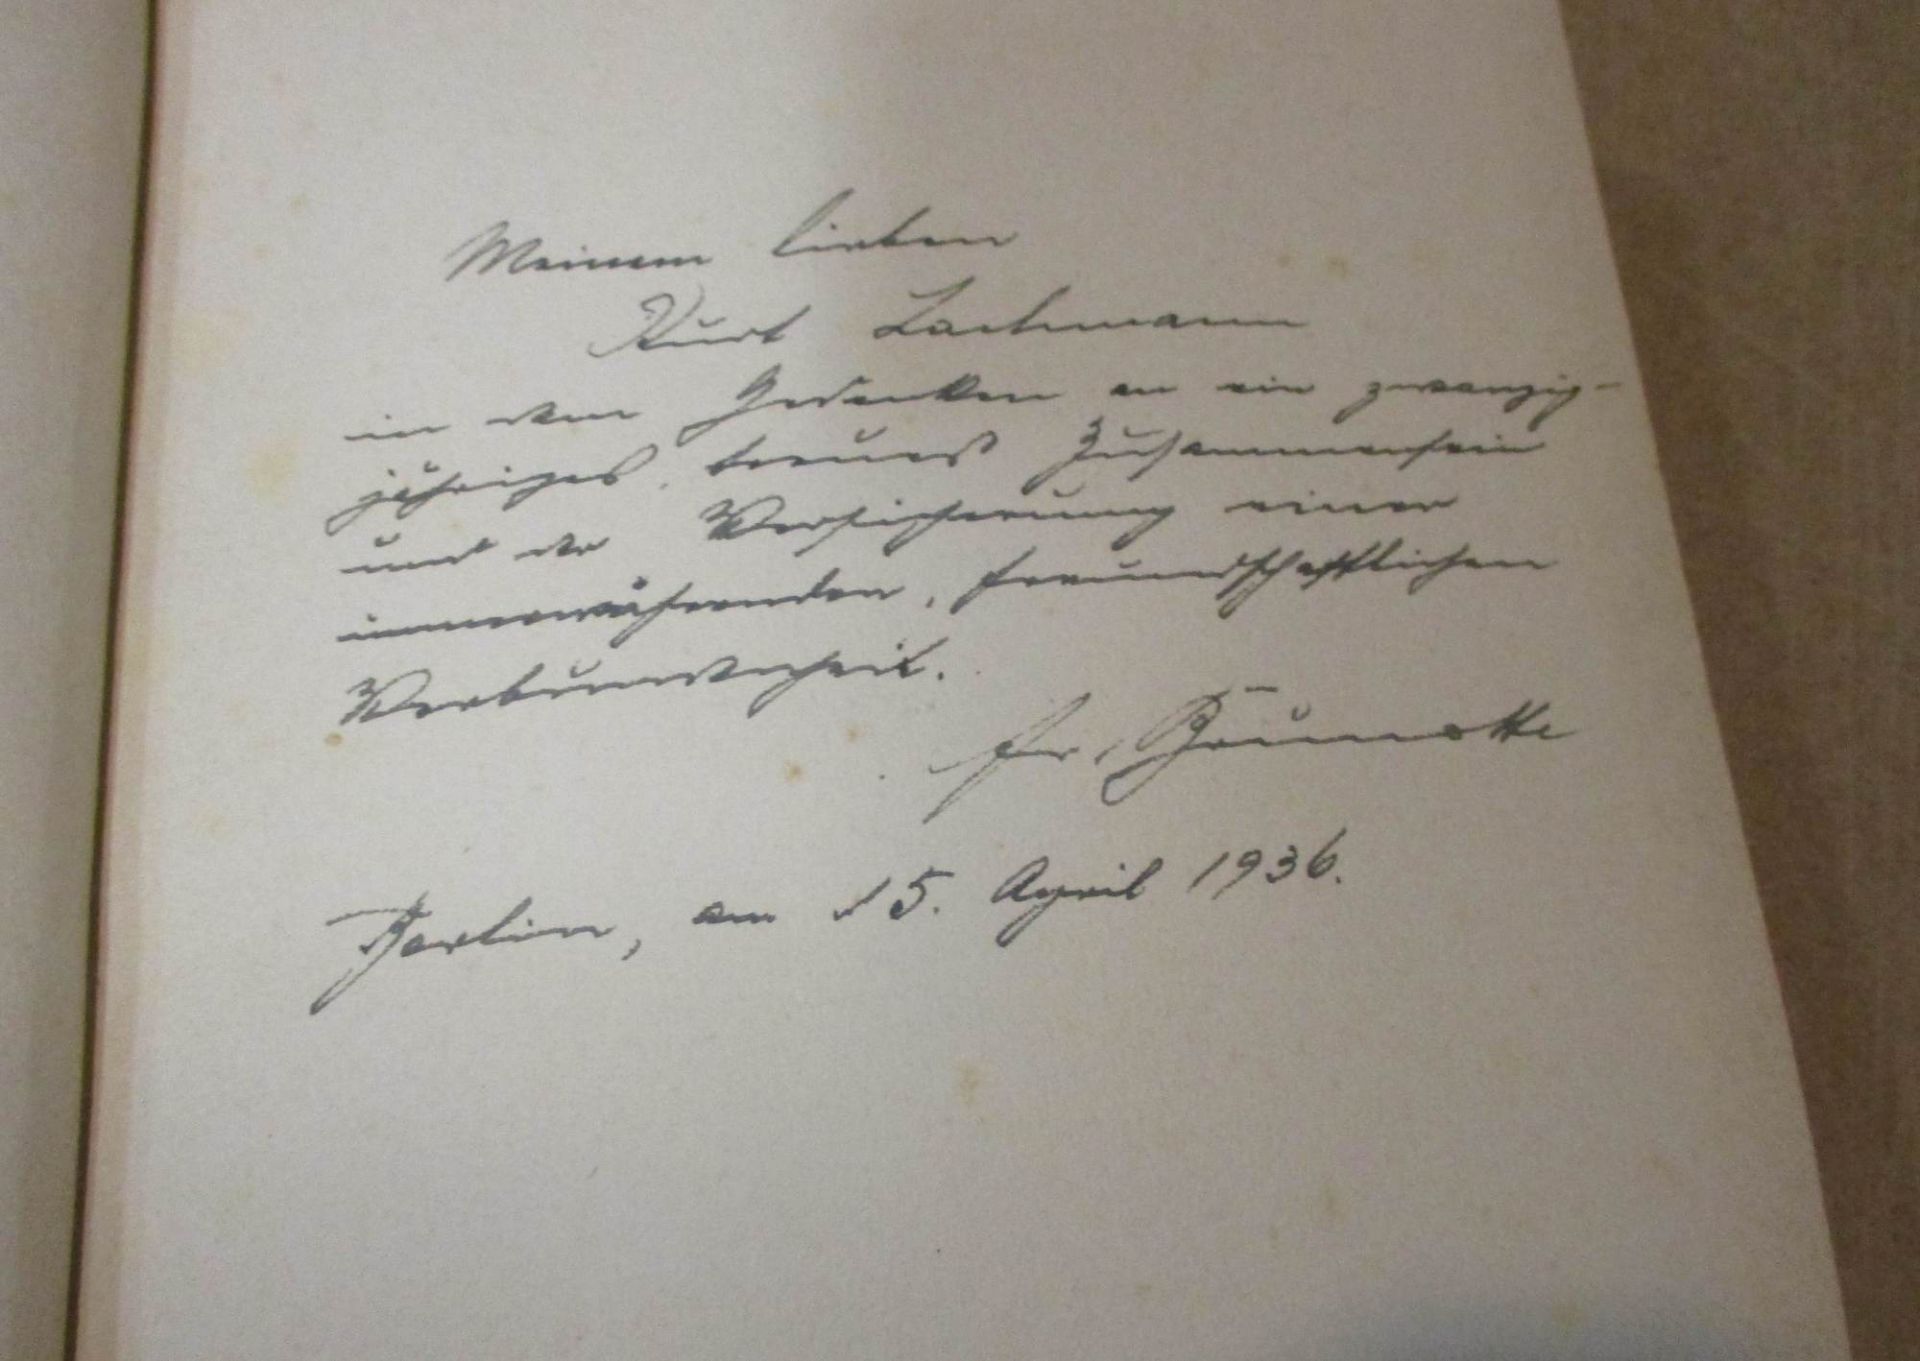 Meinem lieben
Kurt Lachmann
in dem Gedenken an ein zwanzig-
jähriges, treues Zusammensein
und der Versicherung einer
immerwährenden, freundschaftlichen
Verbundenheit.
Fr. Brunotte
Berlin, am 15. April 1936.